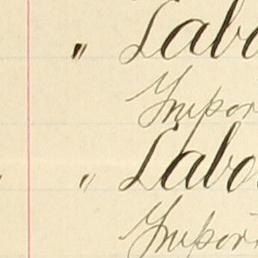 " Labo
Impor
" Labo
Impor